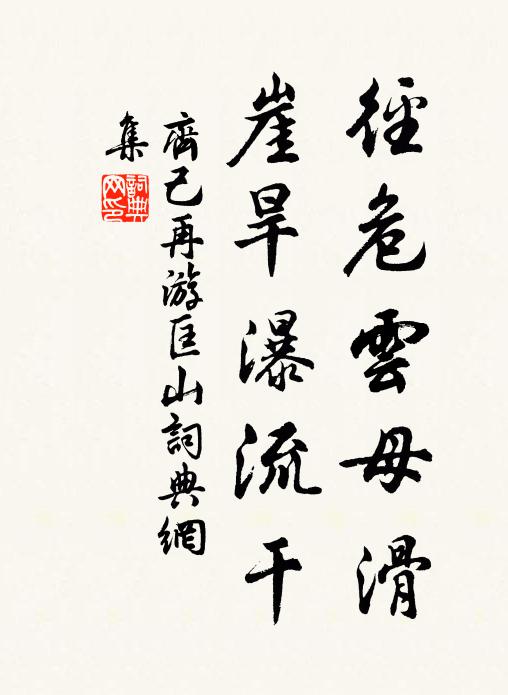 徑危雲母滑
崖旱瀑流干
齊己再游匡山詞典網
集
詞典
网印